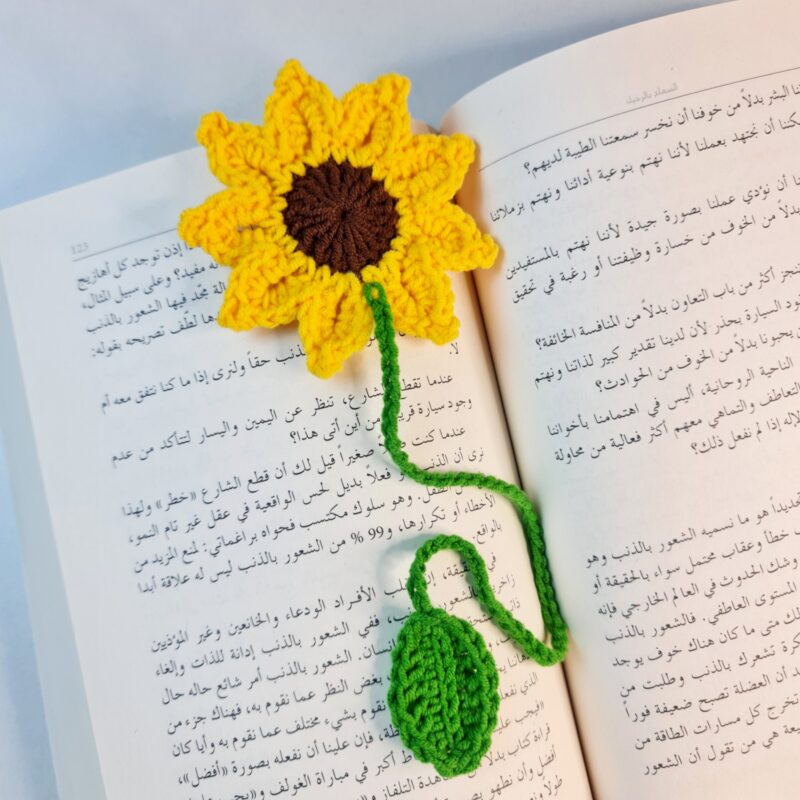 السماح بالرحيل
نا البشر بدلاً من خوفنا أن نخسر سمعتنا الطيبة لديهم؟
كننا أن نجتهد بعملنا لأننا نهتم بنوعية أدائنا ونهتم بزملائنا
نا أن نؤدي عملنا بصورة جيدة لأننا نهتم بالمستفيدين
بدلاً من الخوف من خسارة وظيفتنا أو رغبة في تحقيق
ننجز أكثر من باب التعاون بدلاً من المنافسة الخائفة؟
ود السيارة بحذر لأن لدينا تقدير كبير لذاتنا ونهتم
ن يحبونا بدلاً من الخوف من الحوادث؟
الناحية الروحانية، أليس في اهتمامنا بأخواننا
التعاطف والتماهي معهم أكثر فعالية من محاولة
لاله إذا لم نفعل ذلك؟
تحديداً هو ما نسميه الشعور بالذنب وهو
ب خطأ وعقاب محتمل سواء بالحقيقة أو
وشك الحدوث في العالم الخارجي فإنه
المستوى العاطفي. فالشعور بالذنب
لك متى ما كان هناك خوف يوجد
كرة تشعرك بالذنب وطلبت من
د أن العضلة تصبح ضعيفة فوراً
تخرج كل مسارات الطاقة من
يعة هي من تقول أن الشعور
123
إذن توجد كل أهازيج
ه مفيد؟ وعلى سبيل المثال،
لة مجّد فيها الشعور بالذنب
ها لطّف تصريحه بقوله:
لذنب حقاً ولنرى إذا ما كنا نتفق معه أم
لا.
عندما تقط الشارع، تنظر عن اليمين واليسار لتتأكد من عدم
وجود سيارة قريبة من أين أتى هذا؟
عندما كنت صغيراً قيل لك أن قطع الشارع «خطر» ولهذا
نرى أن الذنب فعلاً بديل لحس الواقعية في عقل غير تام النمو،
الطفل. وهو سلوك مكتسب فحواه براغماتي: لمنع المزيد من
الأخطاء أو تكرارها، و99 % من الشعور بالذنب ليس له علاقة أبدا
بالواقع.
في قيقة، إن لب الأفراد الودعاء والخانعين وغير المؤذيين
زاخر بالشعور ب، ففي الشعور بالذنب إدانة للذات وإلغاء
نسان. الشعور بالذنب أمر شائع حاله حال
بغض النظر عما نقوم به، فهناك جزء من
نقوم بشيء مختلف عما نقوم به وأيا كان
الذي نفعله طة، فإن علينا أن نفعله بصورة «أفضل»،
«فيجب علي ط أكبر في مباراة الغولف و«يجب
قراءة كتاب بدلاً من هدة التلفاز
أفضل وأن نطهو